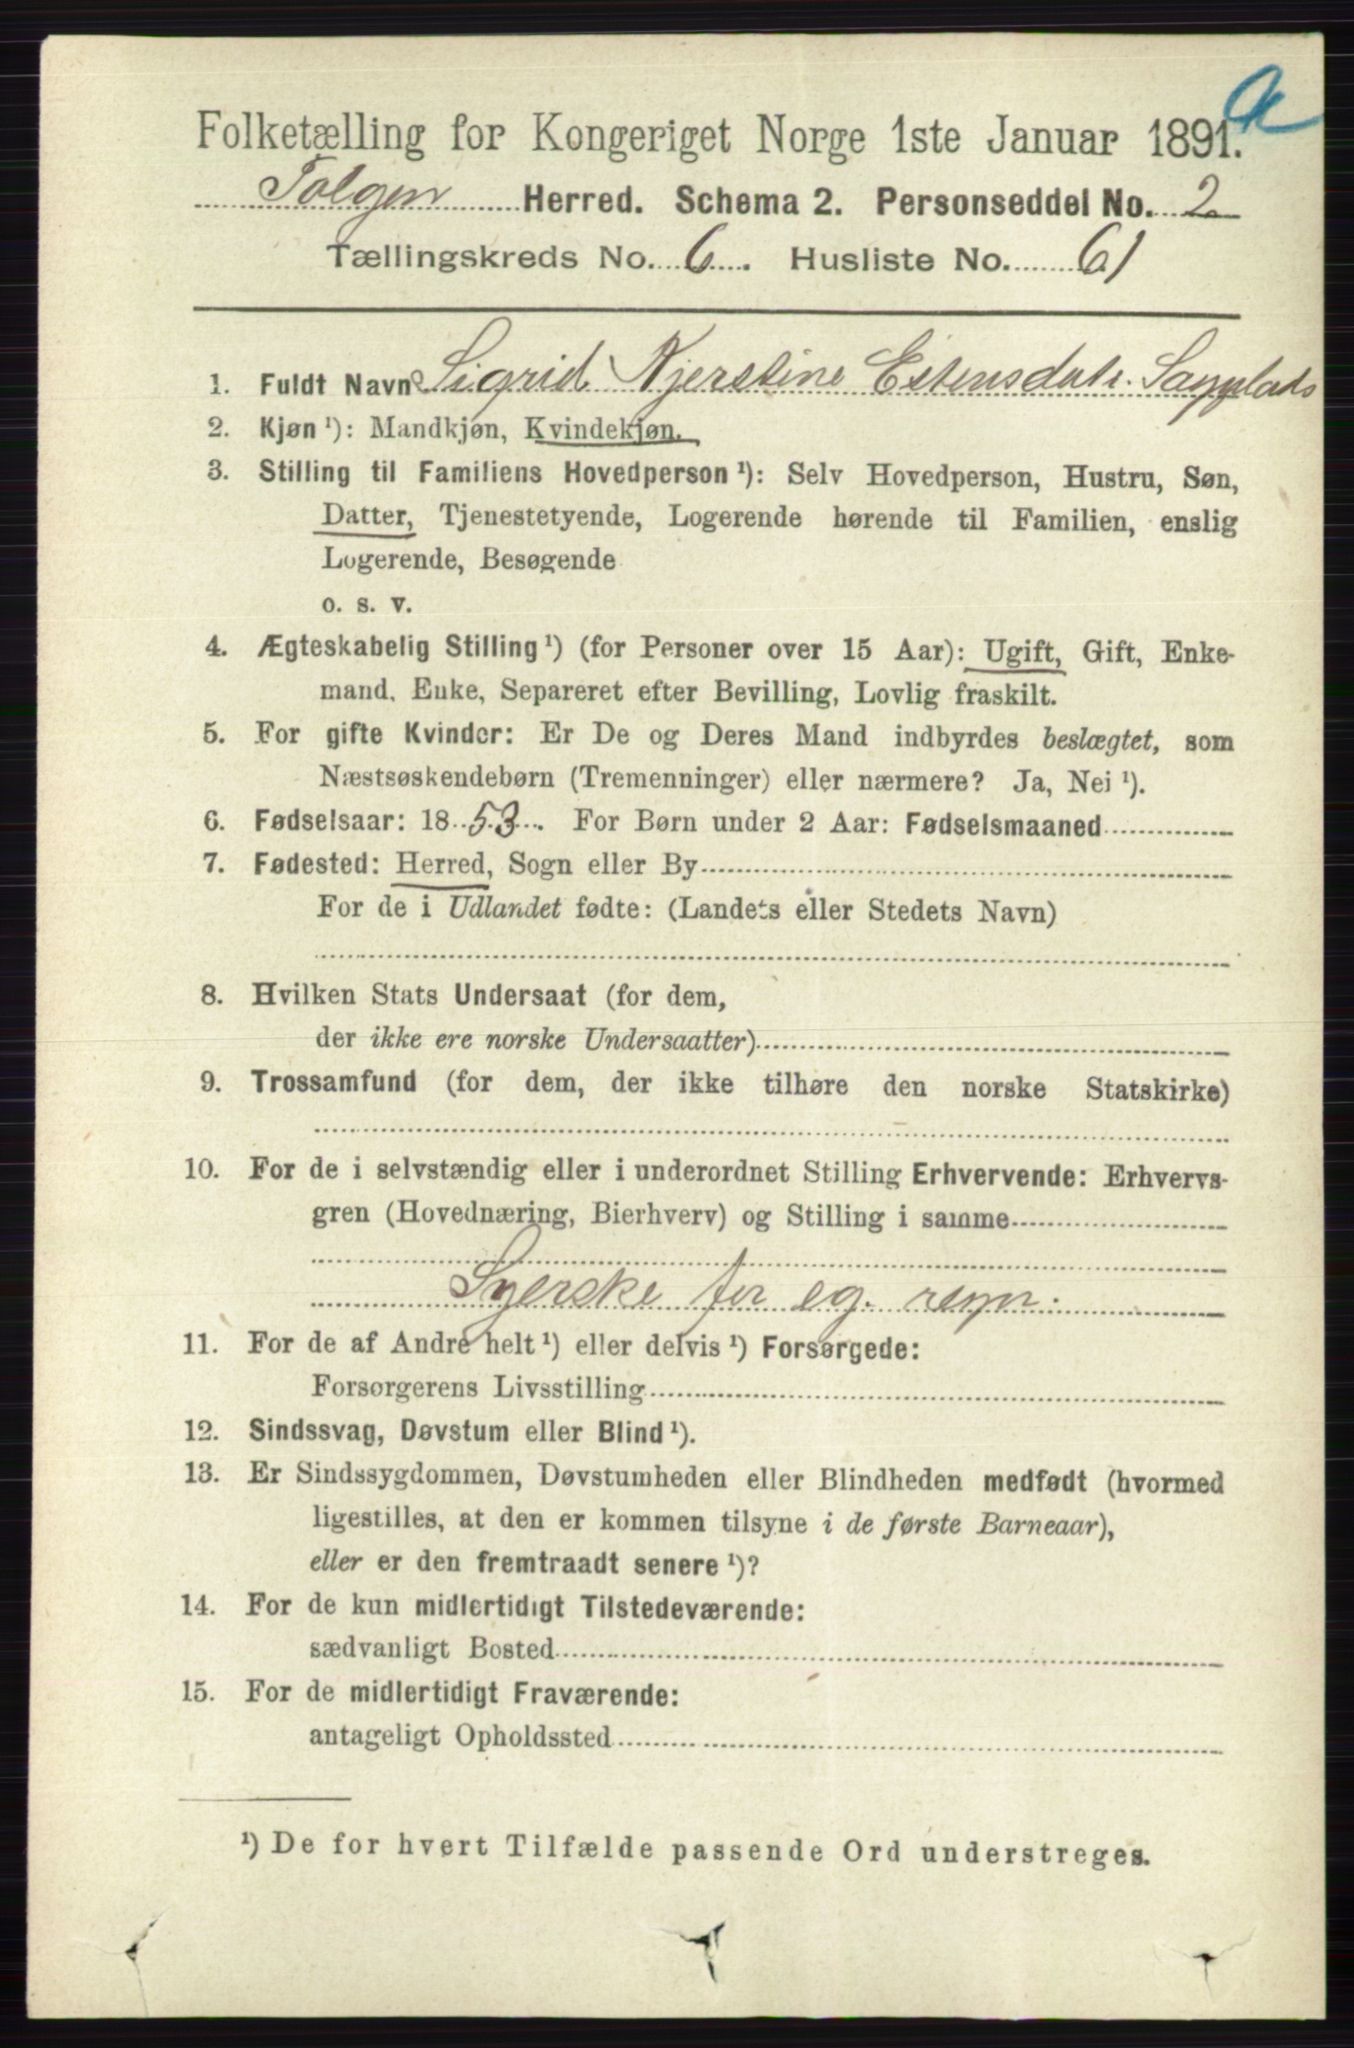 Folketælling for Kongeriget Norge 1ste Januar 1891.
Tolgen Herred. Schema 2. Personseddel No. 2
Tællingskreds No. 6. Husliste No. 61
1. Fuldt Navn Sigrid Kjerstine Estensdatr.
2. Kjøn ¹): Mandkjøn, Kvindekjøn.
3. Stilling til Familiens Hovedperson ¹): Selv Hovedperson, Hustru, Søn,
Datter, Tjenestetyende, Logerende hørende til Familien, enslig
Logerende, Besøgende
o. s. v.
4. Ægteskabelig Stilling ¹) (for Personer over 15 Aar): Ugift, Gift, Enke-
mand, Enke, Separeret efter Bevilling, Lovlig fraskilt.
5. For gifte Kvinder: Er De og Deres Mand indbyrdes beslægtet, som
Næstsøskendebørn (Tremenninger) eller nærmere? Ja, Nei ¹).
6. Fødselsaar: 1853. For Børn under 2 Aar: Fødselsmaaned
7. Fødested: Herred, Sogn eller By
For de i Udlandet fødte: (Landets eller Stedets Navn)
8. Hvilken Stats Undersaat (for dem,
der ikke ere norske Undersaatter)
9. Trossamfund (for dem, der ikke tilhøre den norske Statskirke)
10. For de i selvstændig eller i underordnet Stilling Erhvervende: Erhvervs-
gren (Hovednæring, Bierhverv) og Stilling i samme
Syerske for eg. regn.
11. For de af Andre helt ¹) eller delvis ¹) Forsørgede:
Forsørgerens Livsstilling
12. Sindssvag, Døvstum eller Blind ¹).
13. Er Sindssygdommen, Døvstumheden eller Blindheden medfødt (hvormed
ligestilles, at den er kommen tilsyne i de første Barneaar),
eller er den fremtraadt senere ¹)?
14. For de kun midlertidigt Tilstedeværende:
sædvanligt Bosted
15. For de midlertidigt Fraværende:
antageligt Opholdssted
¹) De for hvert Tilfælde passende Ord understreges.